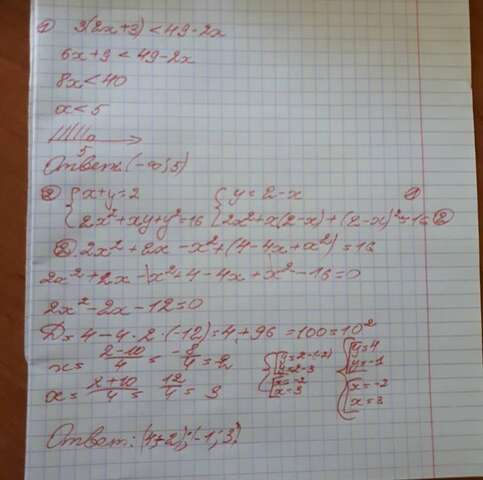 ① 3(2x+3) < 49-2x
6x+9 < 49-2x
8x < 40
x < 5
5
Ответ: (-∞; 5)
② { x+y=2 { y = 2-x ①
{ 2x²+xy+y²=16 { 2x²+x(2-x)+(2-x)²=16 ②
② 2x²+2x-x²+(4-4x+x²)=16
2x²+2x-x²+4-4x+x²-16=0
2x²-2x-12=0
D=4-4·2·(-12)=4+96=100=10²
x=(2-10)/4=-8/4=2
x=(2+10)/4=12/4=3
{ [ y=2-(-2) { [ y=4
[ y=2-3 [ y=-1
[ x=-2 [ x=-2
[ x=3 [ x=3
Ответ: (4;-2); (-1; 3)